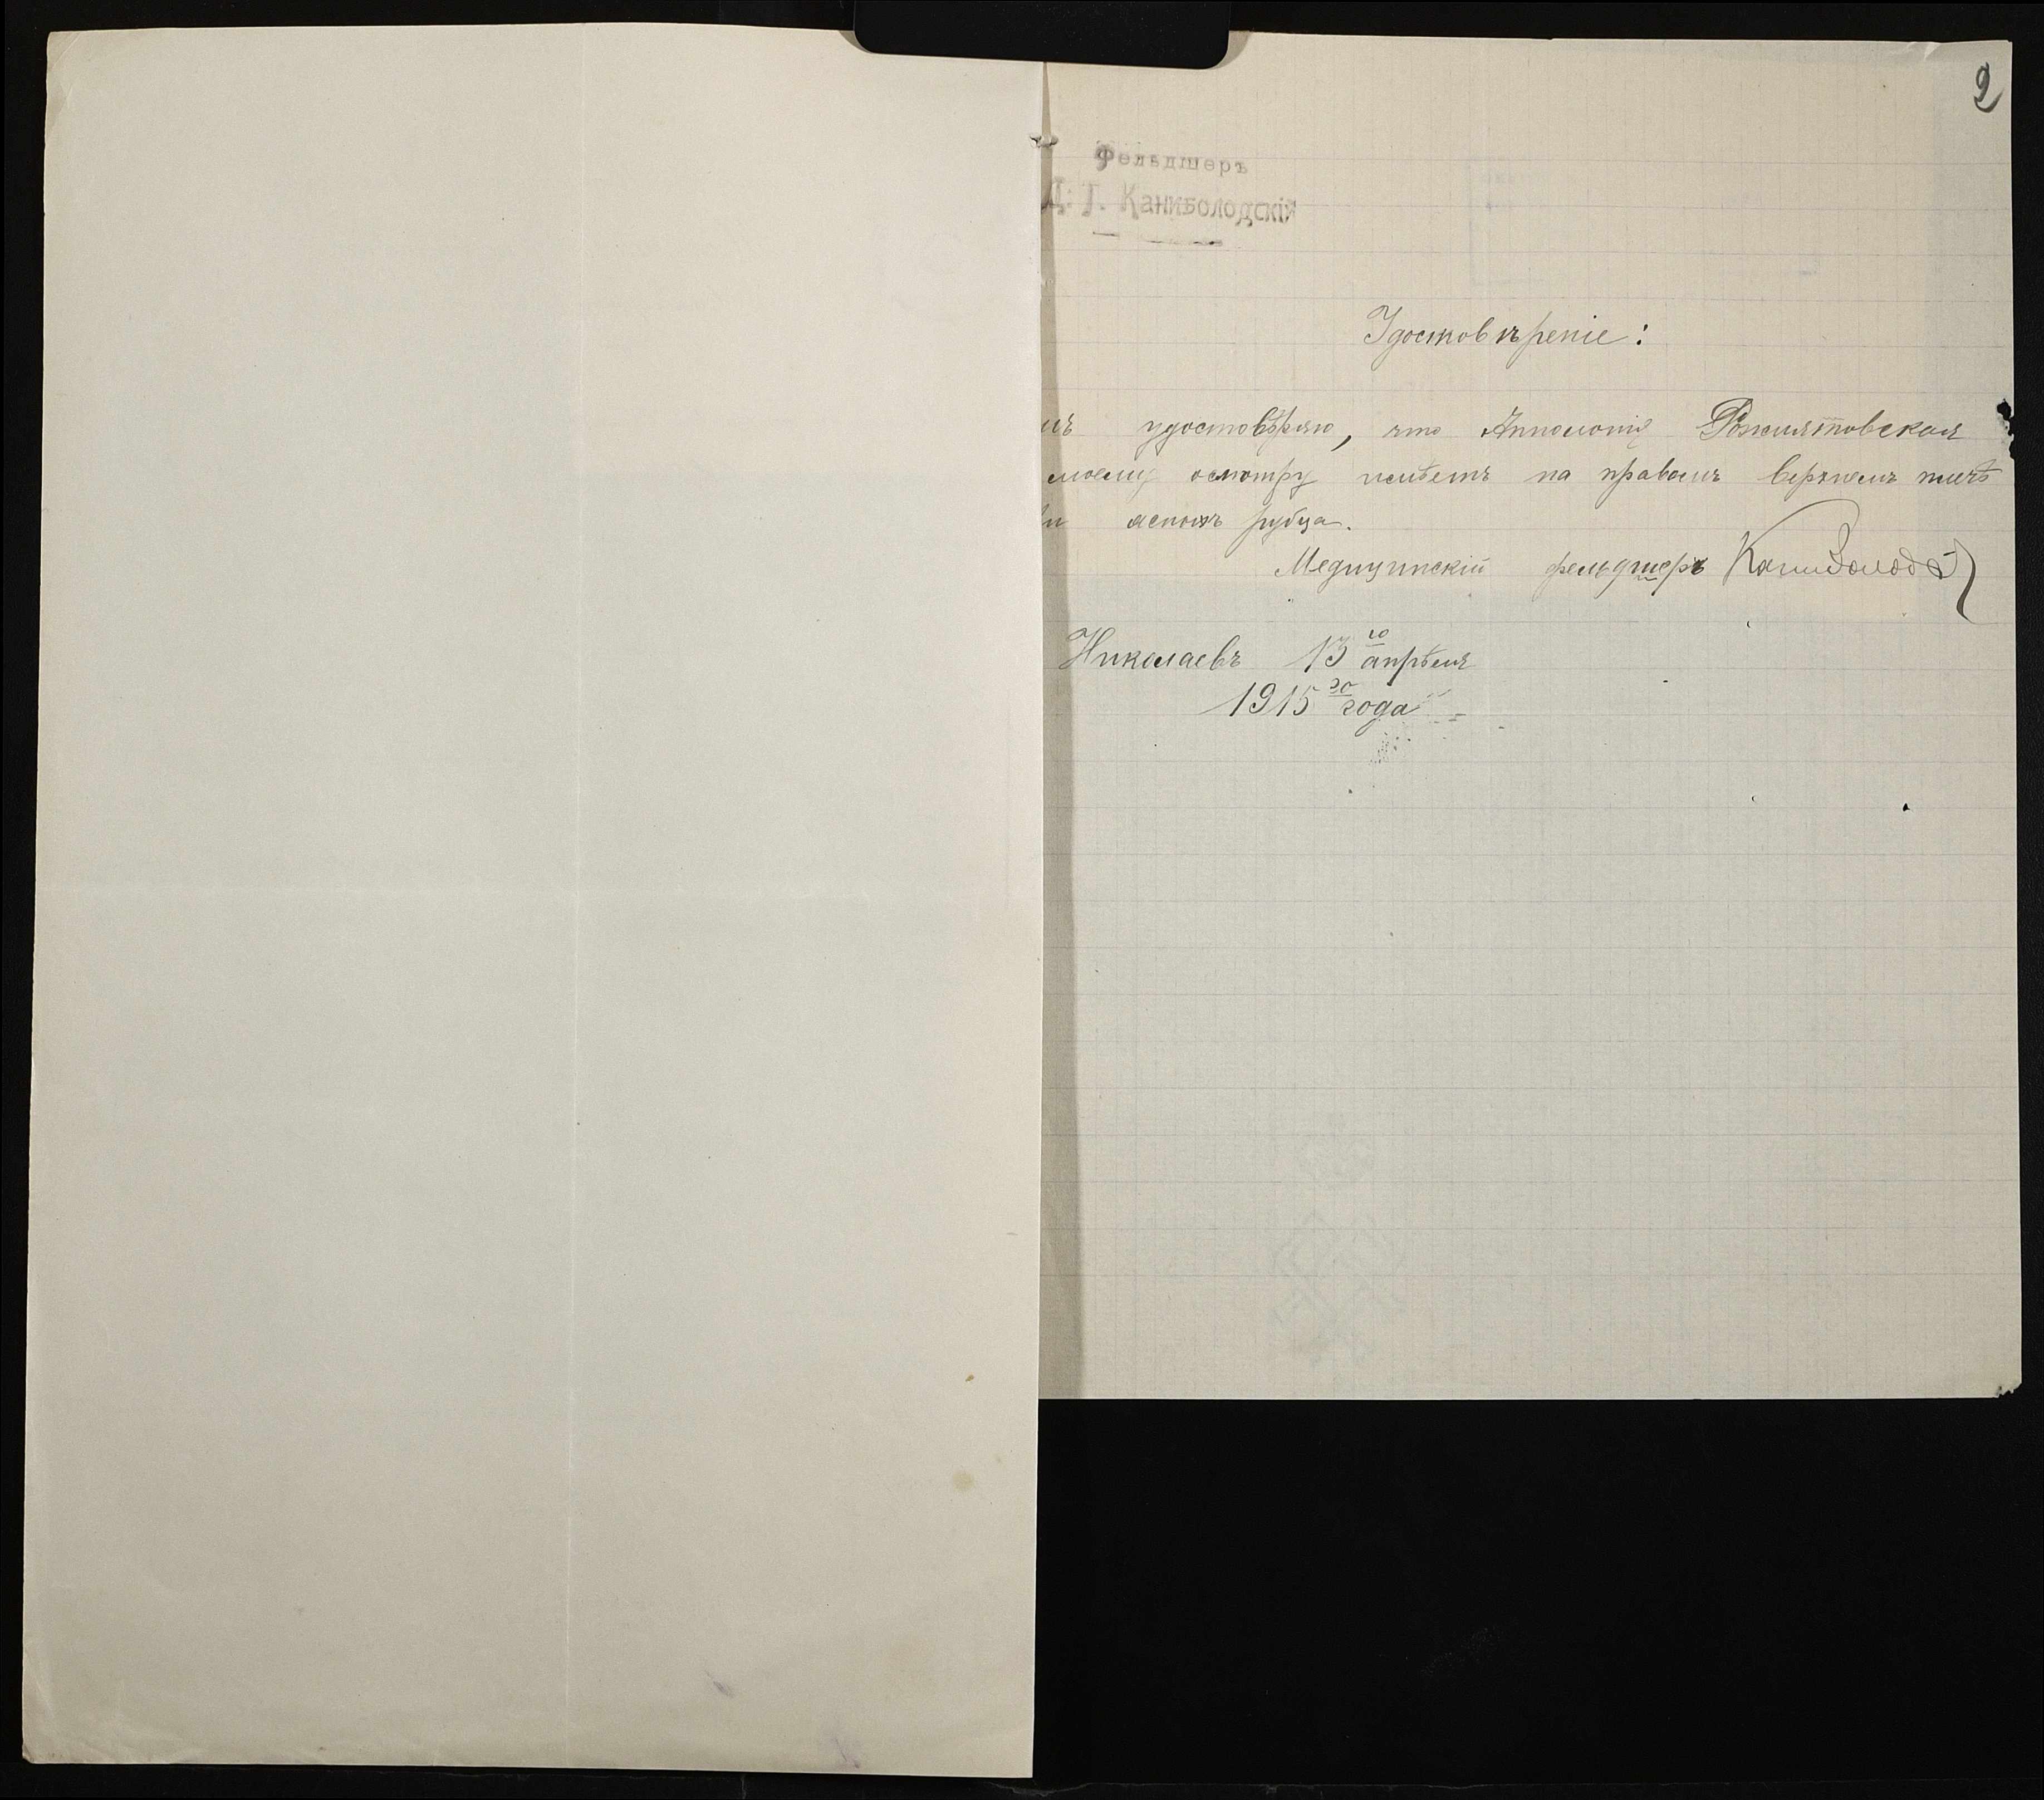 2
Фельдшеръ
Д. Г. Каниболодскій
Удостовѣреніе:
мъ удостовѣряю, что Апполонія Рожнятовская
моему осмотру имѣетъ на правомъ верхнемъ плечѣ
и оспохъ рубца.
Медицинскій фельдшеръ Каниболод
Николаевъ 13го апрѣля
1915го года